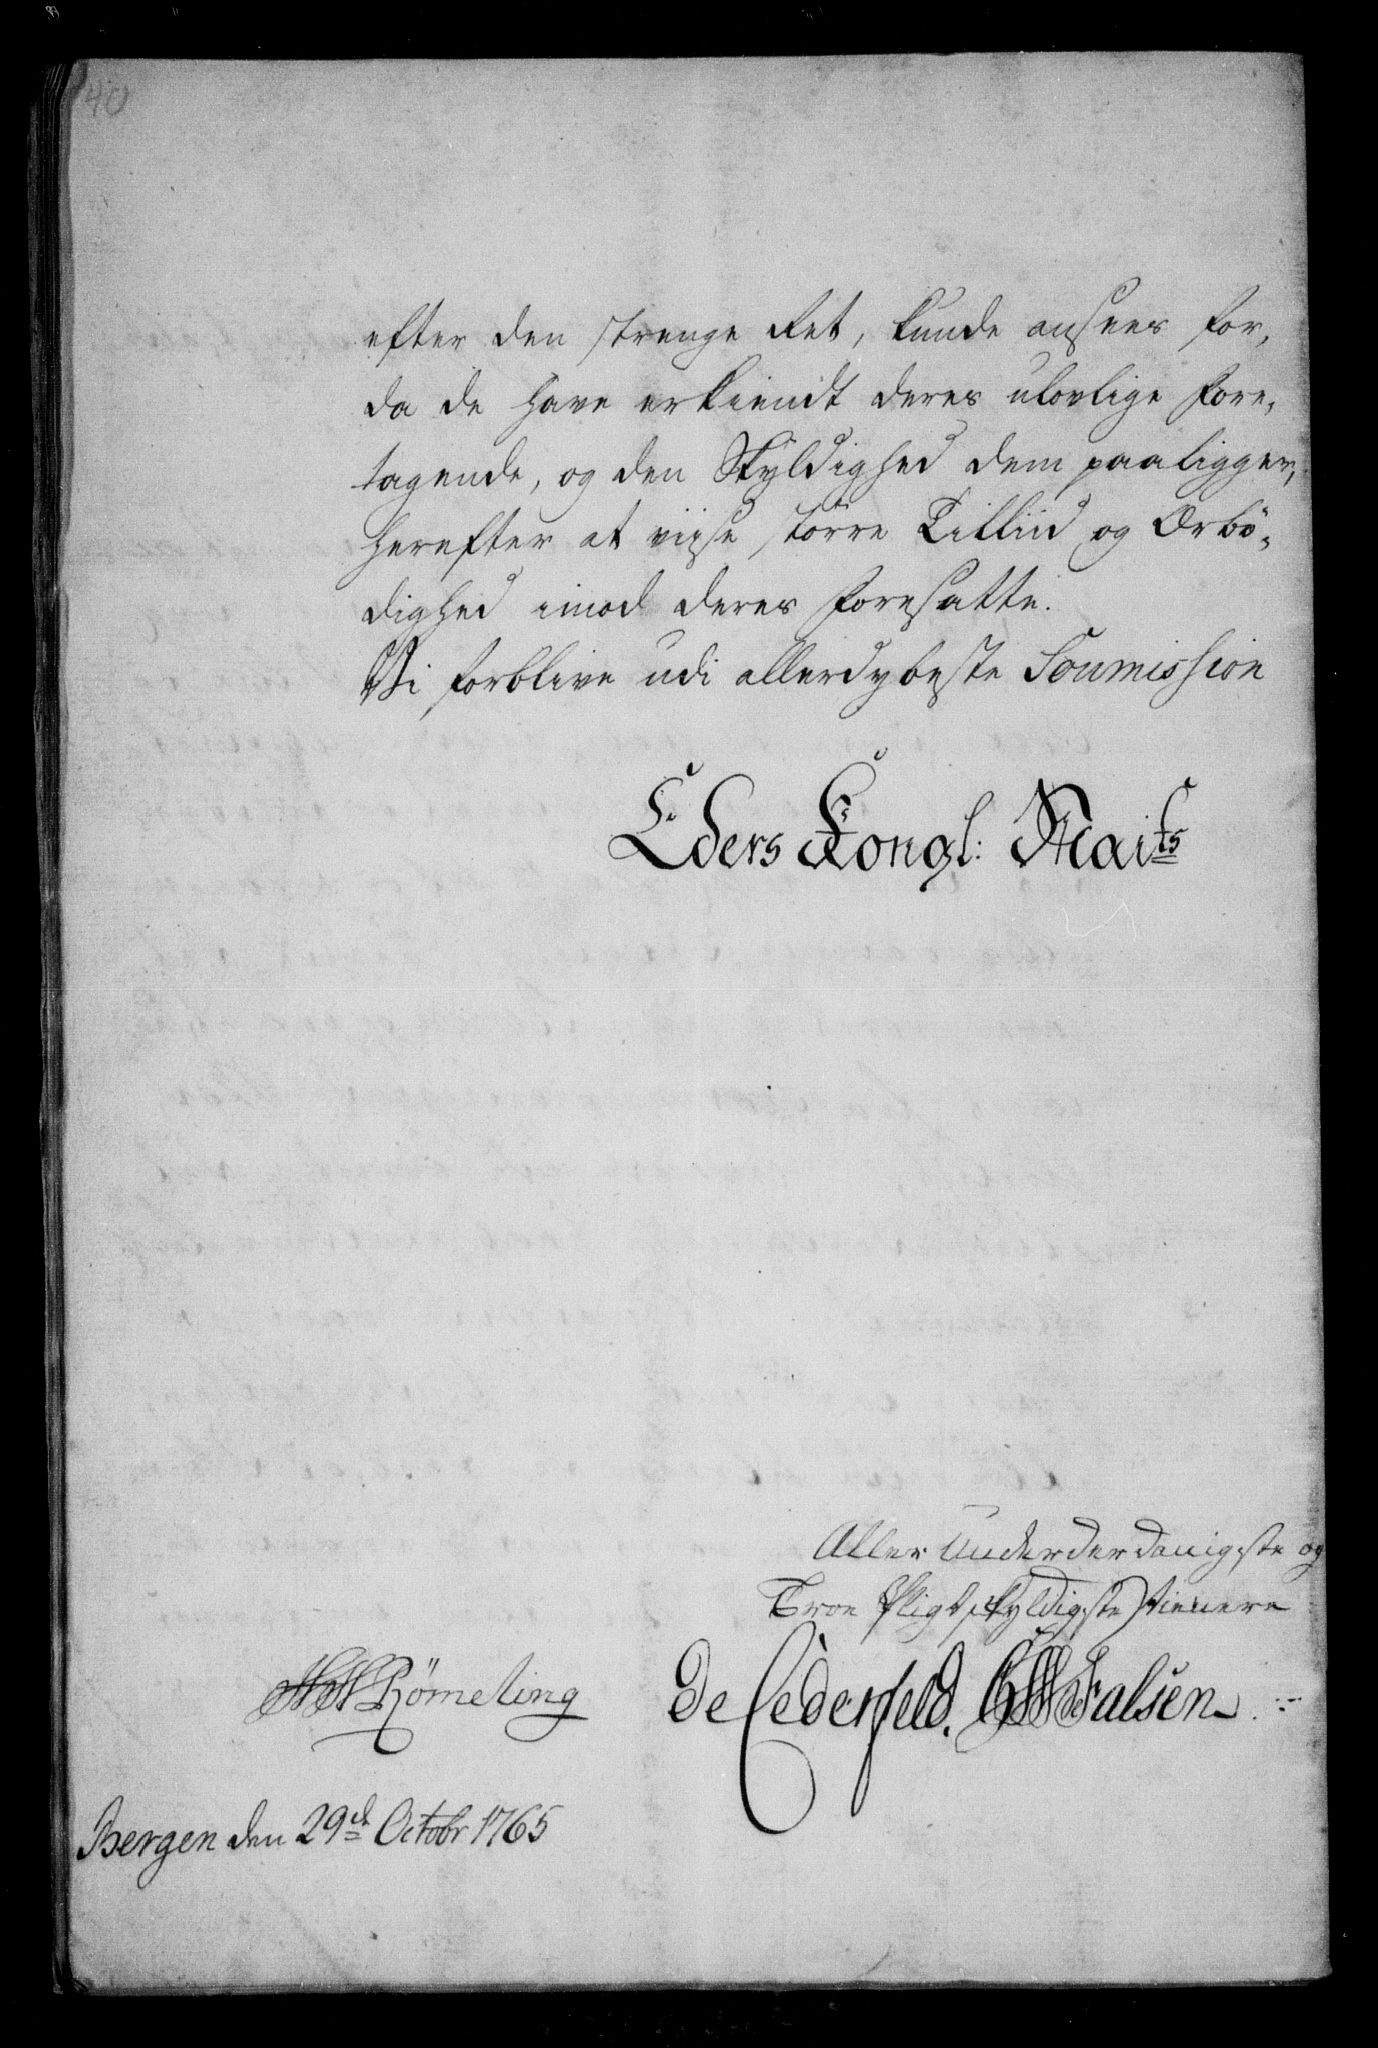 40
efter den strenge Ret, kunde ansees for,
da de have erkiendt deres ulovlige Fore,
tagende, og den Skyldighed dem paaligger,
herefter at viise større Tilliid og Ærbö,
dighed imod deres Foresatte.
Vi forblive udi allerdybeste Soumission
Eders Kongl: Maits
Aller Underderdanigste og
Troe Pligtskyldigste Tienere
Römeling de Cederfeld. Falsen
Bergen den 29de Octobr 1765